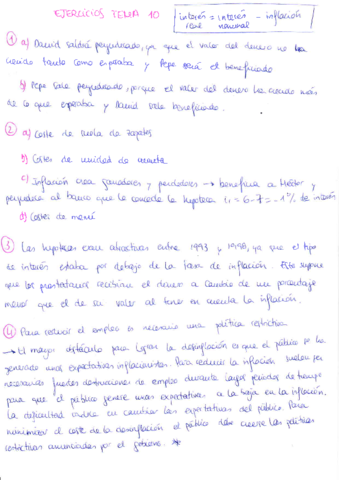 EJERCICIOS TEMA 10
interés real = interés nominal - inflación
① a) David saldrá perjudicado, ya que el valor del dinero no ha
crecido tanto como esperaba y Pepe será el beneficiado
b) Pepe sale perjudicado, porque el valor del dinero ha crecido más
de lo que esperaba y David sale beneficiado.
② a) Coste de suela de zapatos
b) Costes de unidad de cuenta
c) Inflación crea ganadores y perdedores → beneficia a Héctor y
perjudica al banco que le concede la hipoteca = 6-7 = -1% de interés
d) Costes de menú
③ Las hipotecas eran atractivas entre 1993 y 1998, ya que el tipo
de interés estaba por debajo de la tasa de inflación. Esto supone
que los prestatarios recibían el dinero a cambio de un porcentaje
menor que el de su valor al tener en cuenta la inflación.
④ Para reducir el empleo es necesario una política restrictiva
→ El mayor obstáculo para lograr la desinflación es que el público se ha
generado unas expectativas inflacionistas. Para reducir la inflación suelen ser
necesarias fuertes destrucciones de empleo durante largos periodos de tiempo
para que el público genere unas expectativas a la baja en la inflación.
La dificultad radica en cambiar las expectativas del público. Para
minimizar el coste de la desinflación el público debe creerse las políticas
restrictivas anunciadas por el gobierno.